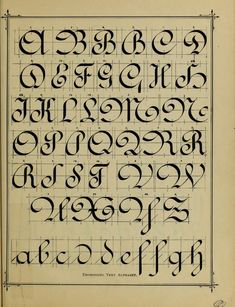 A B B B C D
D E F G G H H
I K L L M N
O P P Q Q R R
R S S T V W
U X Y Z
a b c d e f f g h
ENGROSSING TEXT ALPHABET.